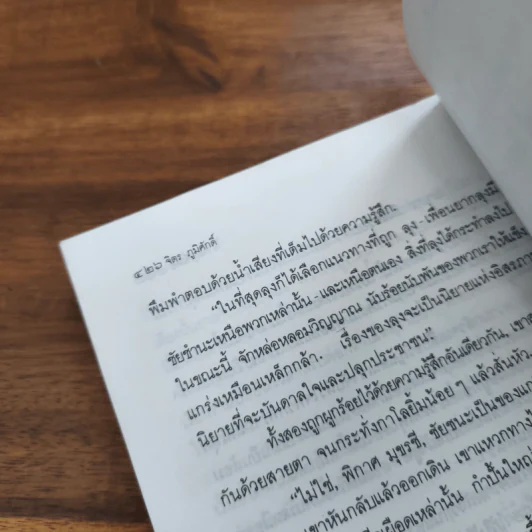 ๔๒๖ จิตร ภูมิศักดิ์
พึมพำตอบด้วยน้ำเสียงที่เต็มไปด้วยความรู้สึก.
"ในที่สุดลุงก็ได้เลือกแนวทางที่ถูก ลุง - เพื่อนยากลุงมี
ชัยชำนะเหนือพวกเหล่านั้น - และเหนือตนเอง สิ่งที่ลุงได้กระทำลงไป
ในขณะนี้ จักหล่อหลอมวิญญาณ นับร้อยนับพันของพวกเราให้แข็ง
แกร่งเหมือนเหล็กกล้า. เรื่องของลุงจะเป็นนิยายแห่งอิสรภาพ
นิยายที่จะบันดาลใจและปลุกประชาชน."
ทั้งสองถูกผูกร้อยไว้ด้วยความรู้สึกอันเดียวกัน, เขา
กันด้วยสายตา จนกระทั่งกาโลยิ้มน้อย ๆ แล้วสั่นหัว
"ไม่ใช่, พิกาศ มุขรชี, ชัยชนะเป็นของ
เขาหันกลับแล้วออกเดิน เขาแหวกทาง
เหยียดเหล่านั้น กำปั้นใหญ่